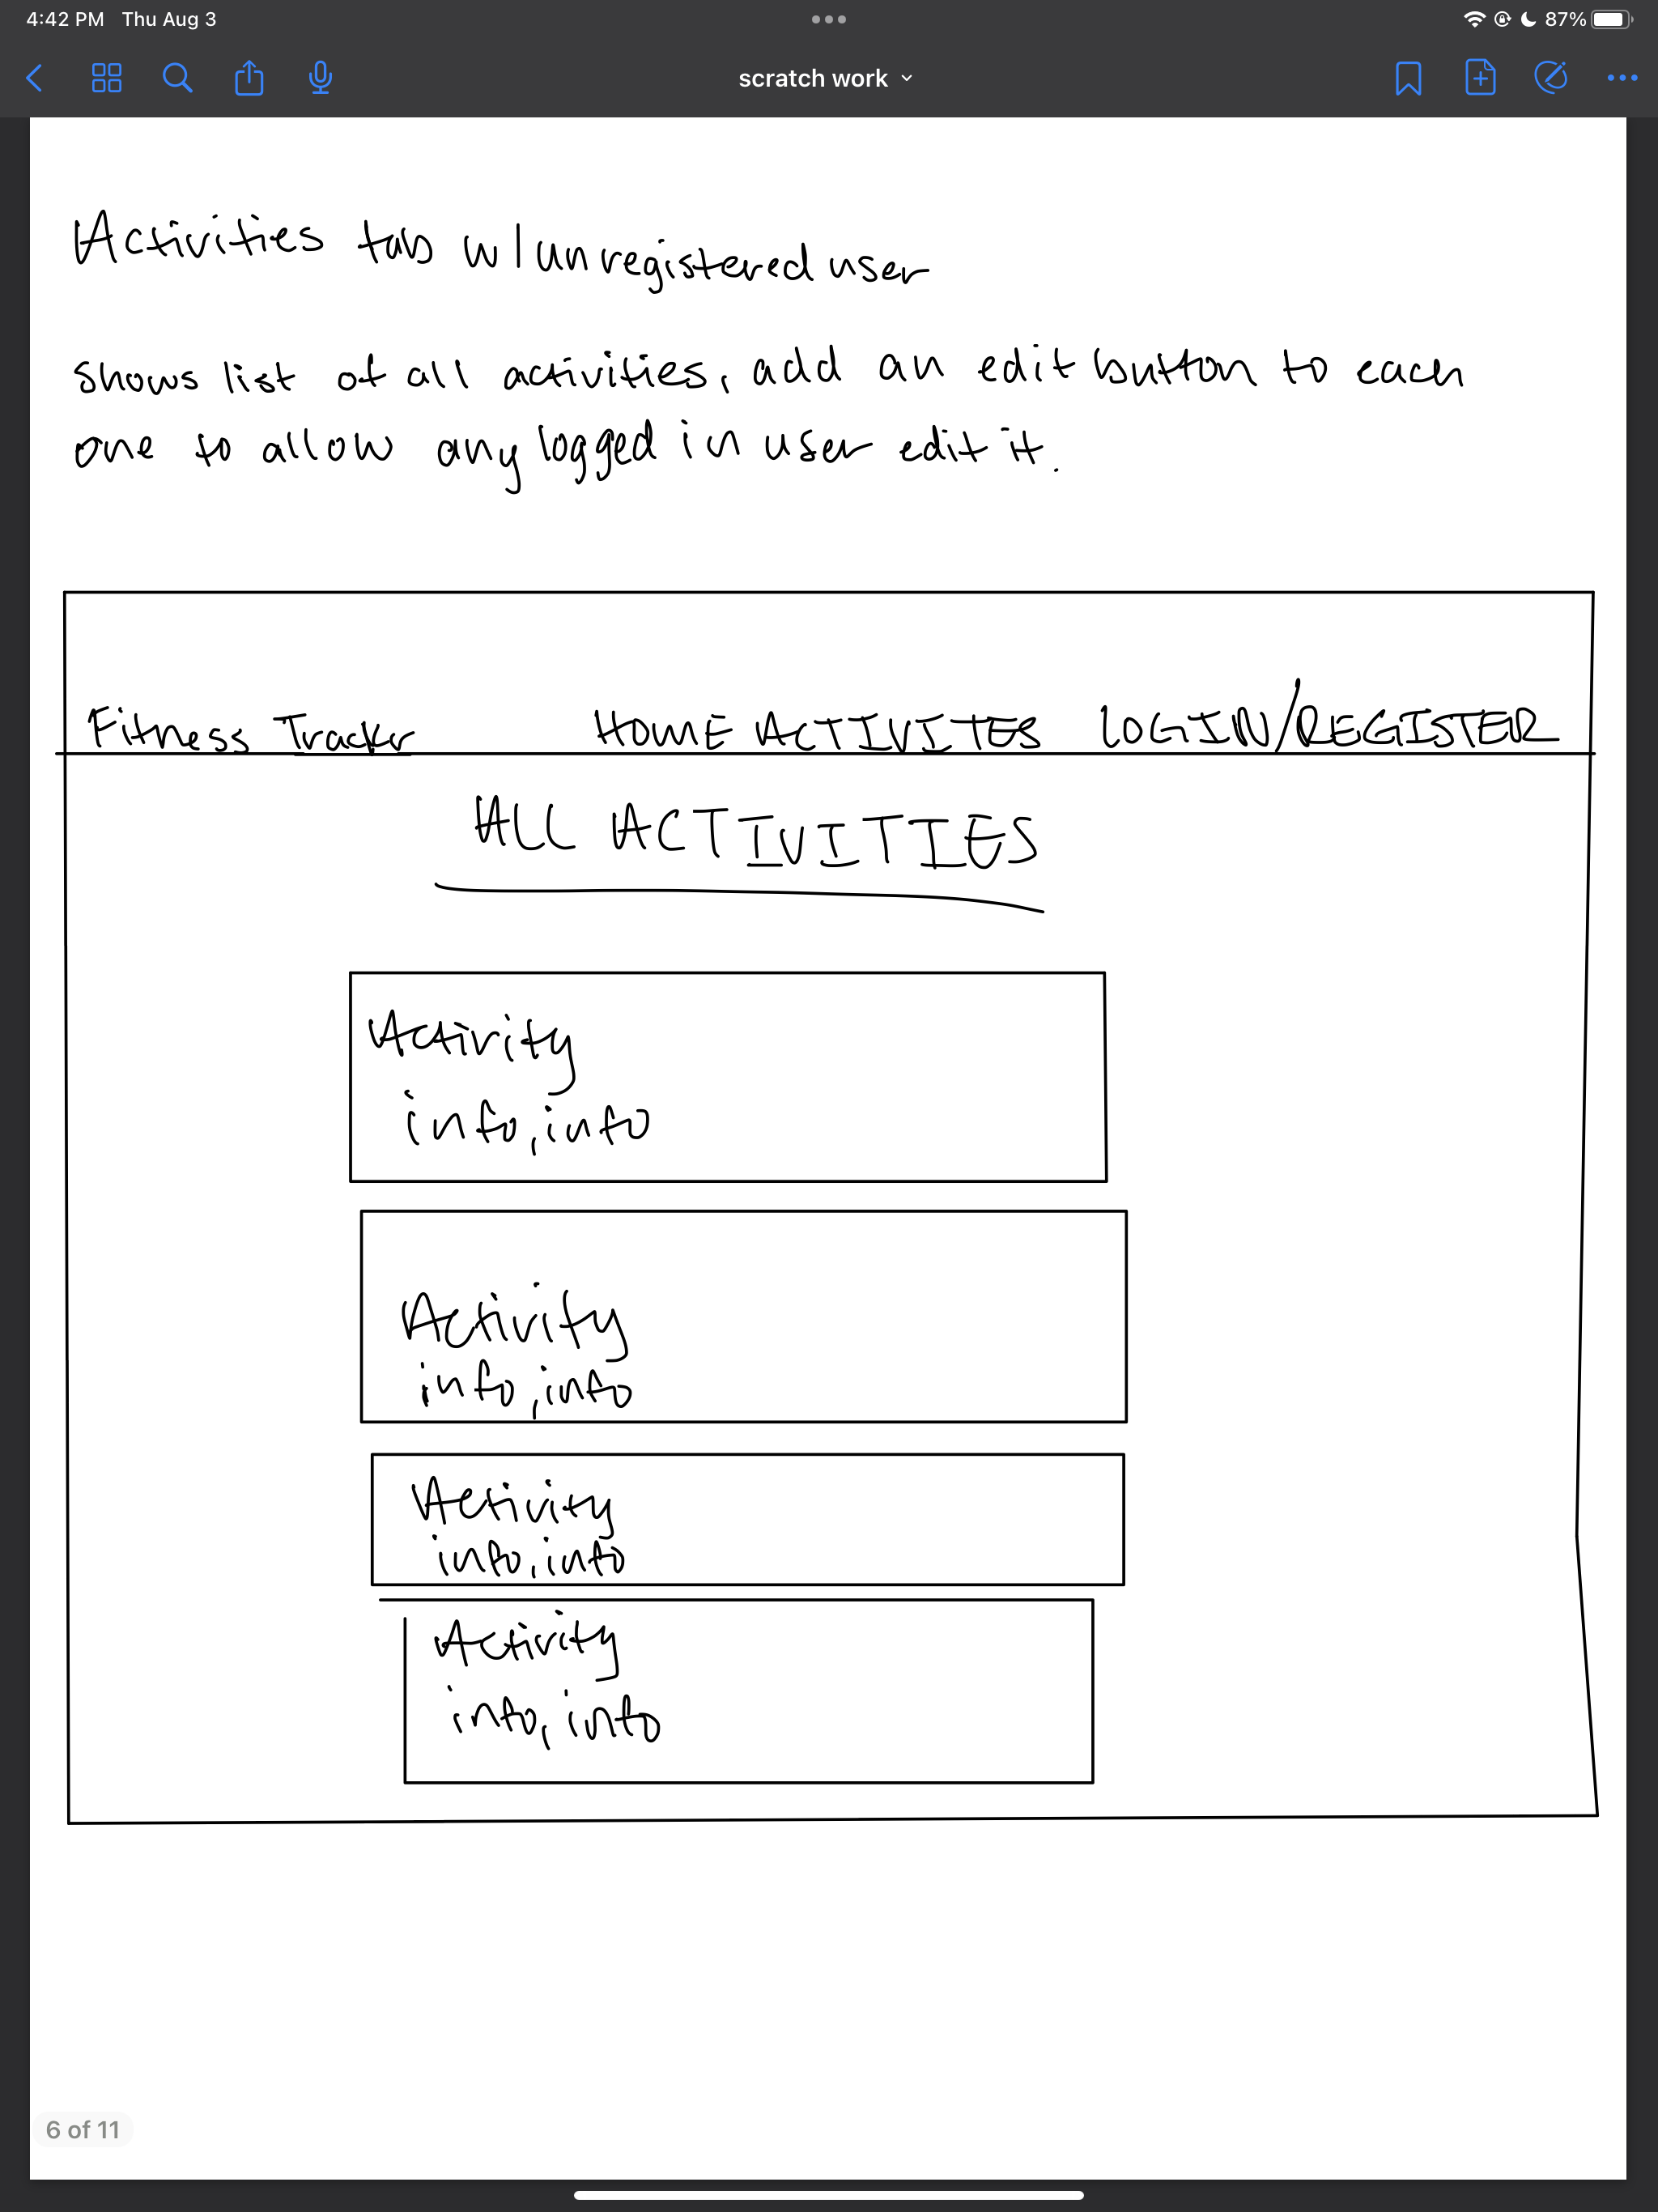 4:42 PM Thu Aug 3
87%
scratch work
Activities tab w/ unregistered user
shows list of all activities, add an edit button to each
one to allow any logged in user edit it.
Fitness Tracker HOME ACTIVITES LOGIN/REGISTER
ALL ACTIVITIES
Activity
info, info
Activity
info, info
Activity
info, info
Activity
info, info
6 of 11